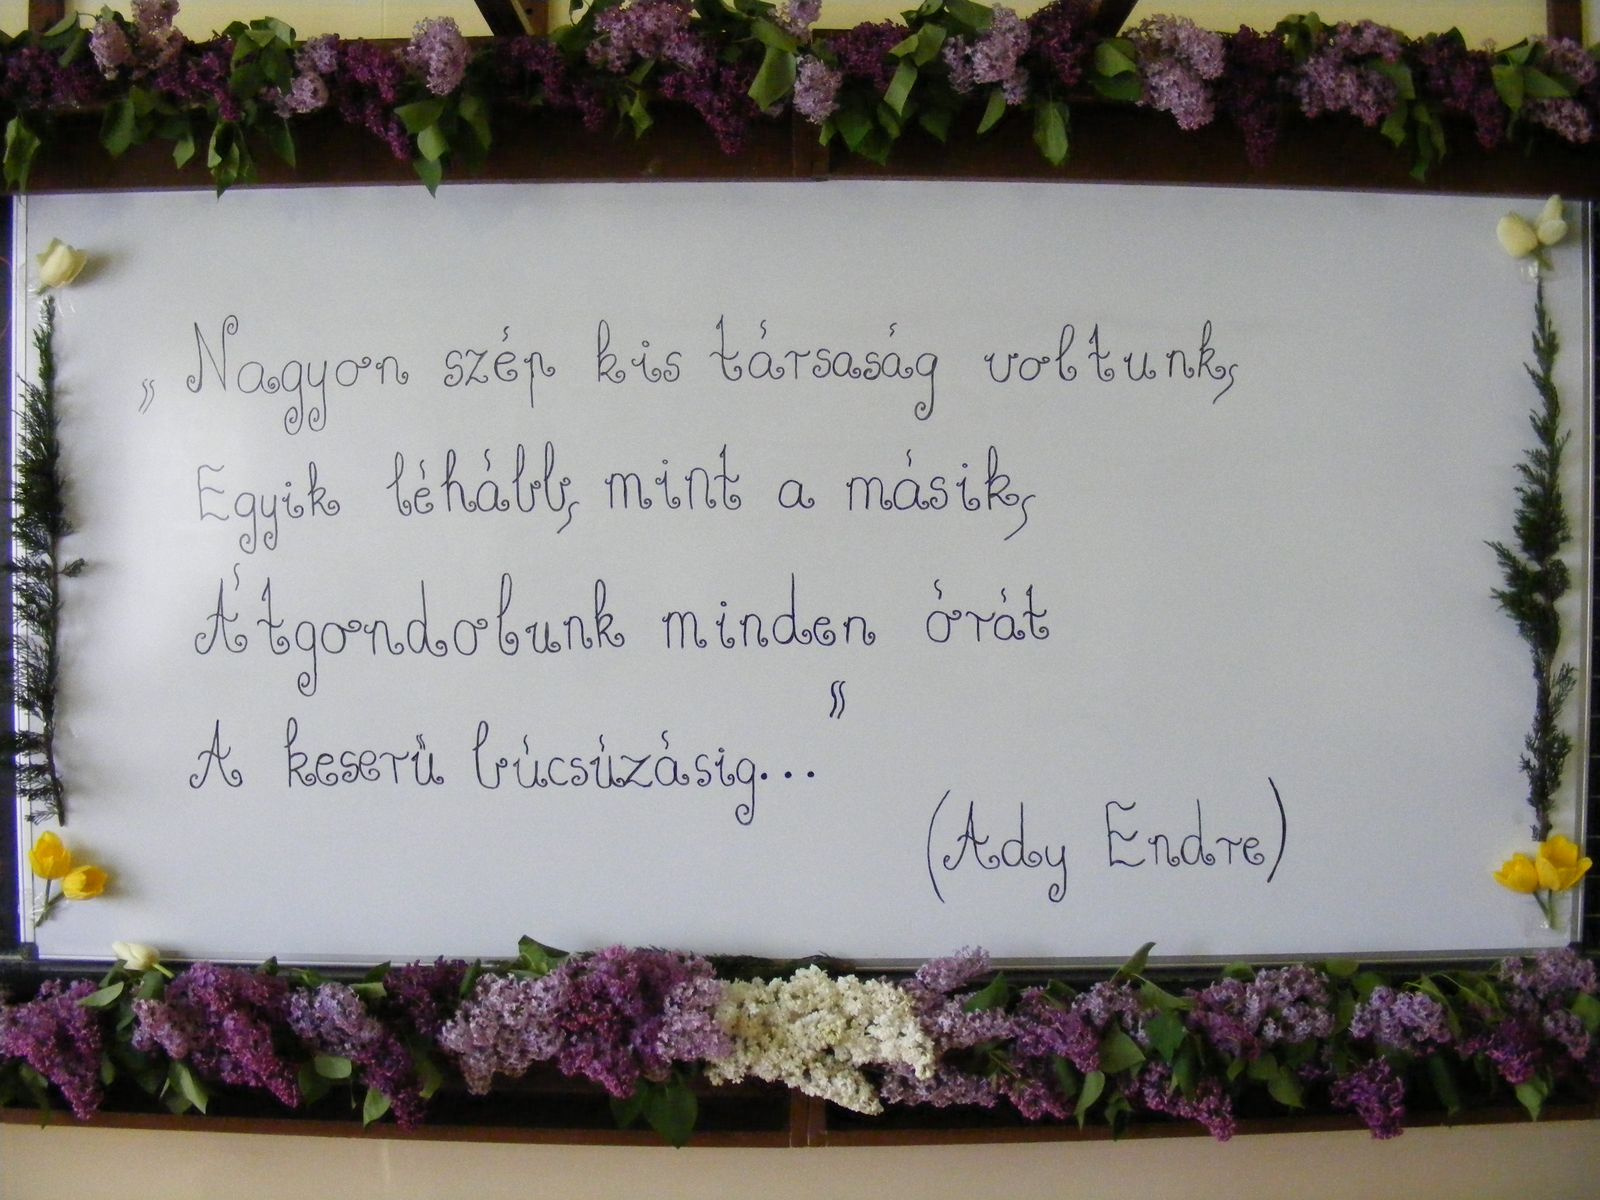 „Nagyon szép kis társaság voltunk,
Egyik léhább, mint a másik,
Átgondolunk minden órát
A keserű búcsúzásig..."
(Ady Endre)